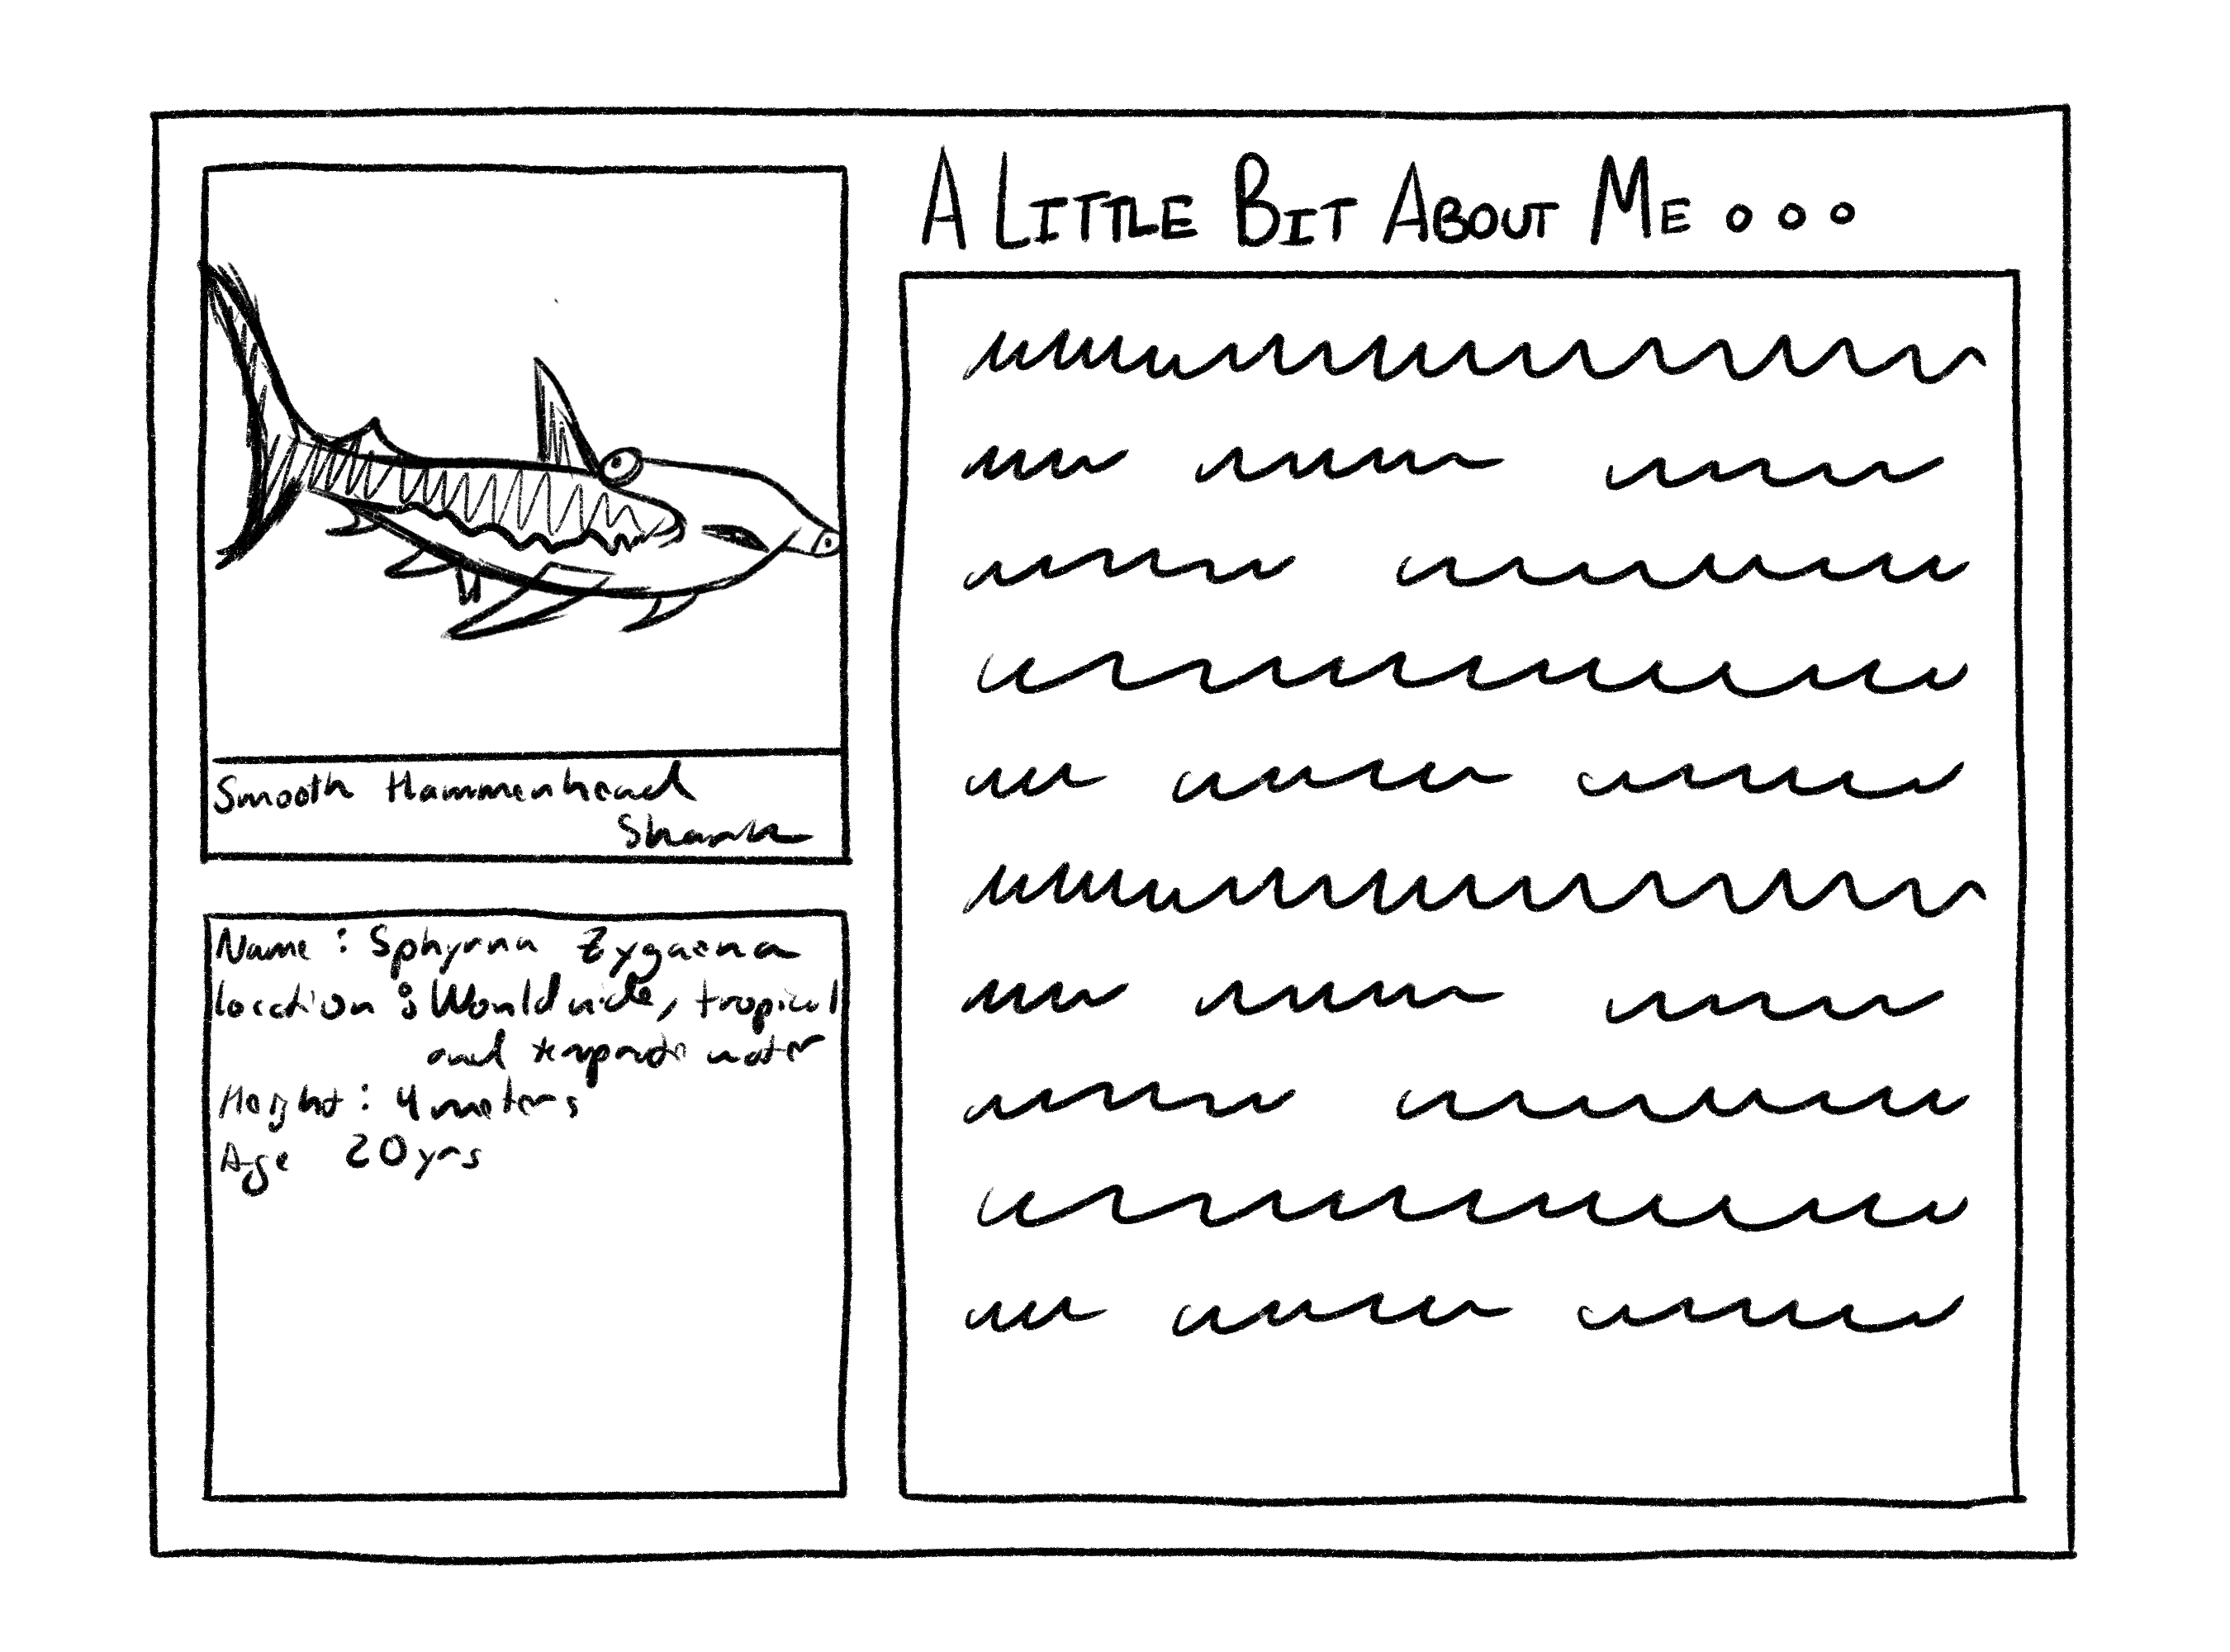 Smooth Hammerhead
Shark
Name: Sphyrna Zygaena
location: Worldwide, tropical
and water
Height: 4 meters
Age 20yrs
A LITTLE BIT ABOUT ME...